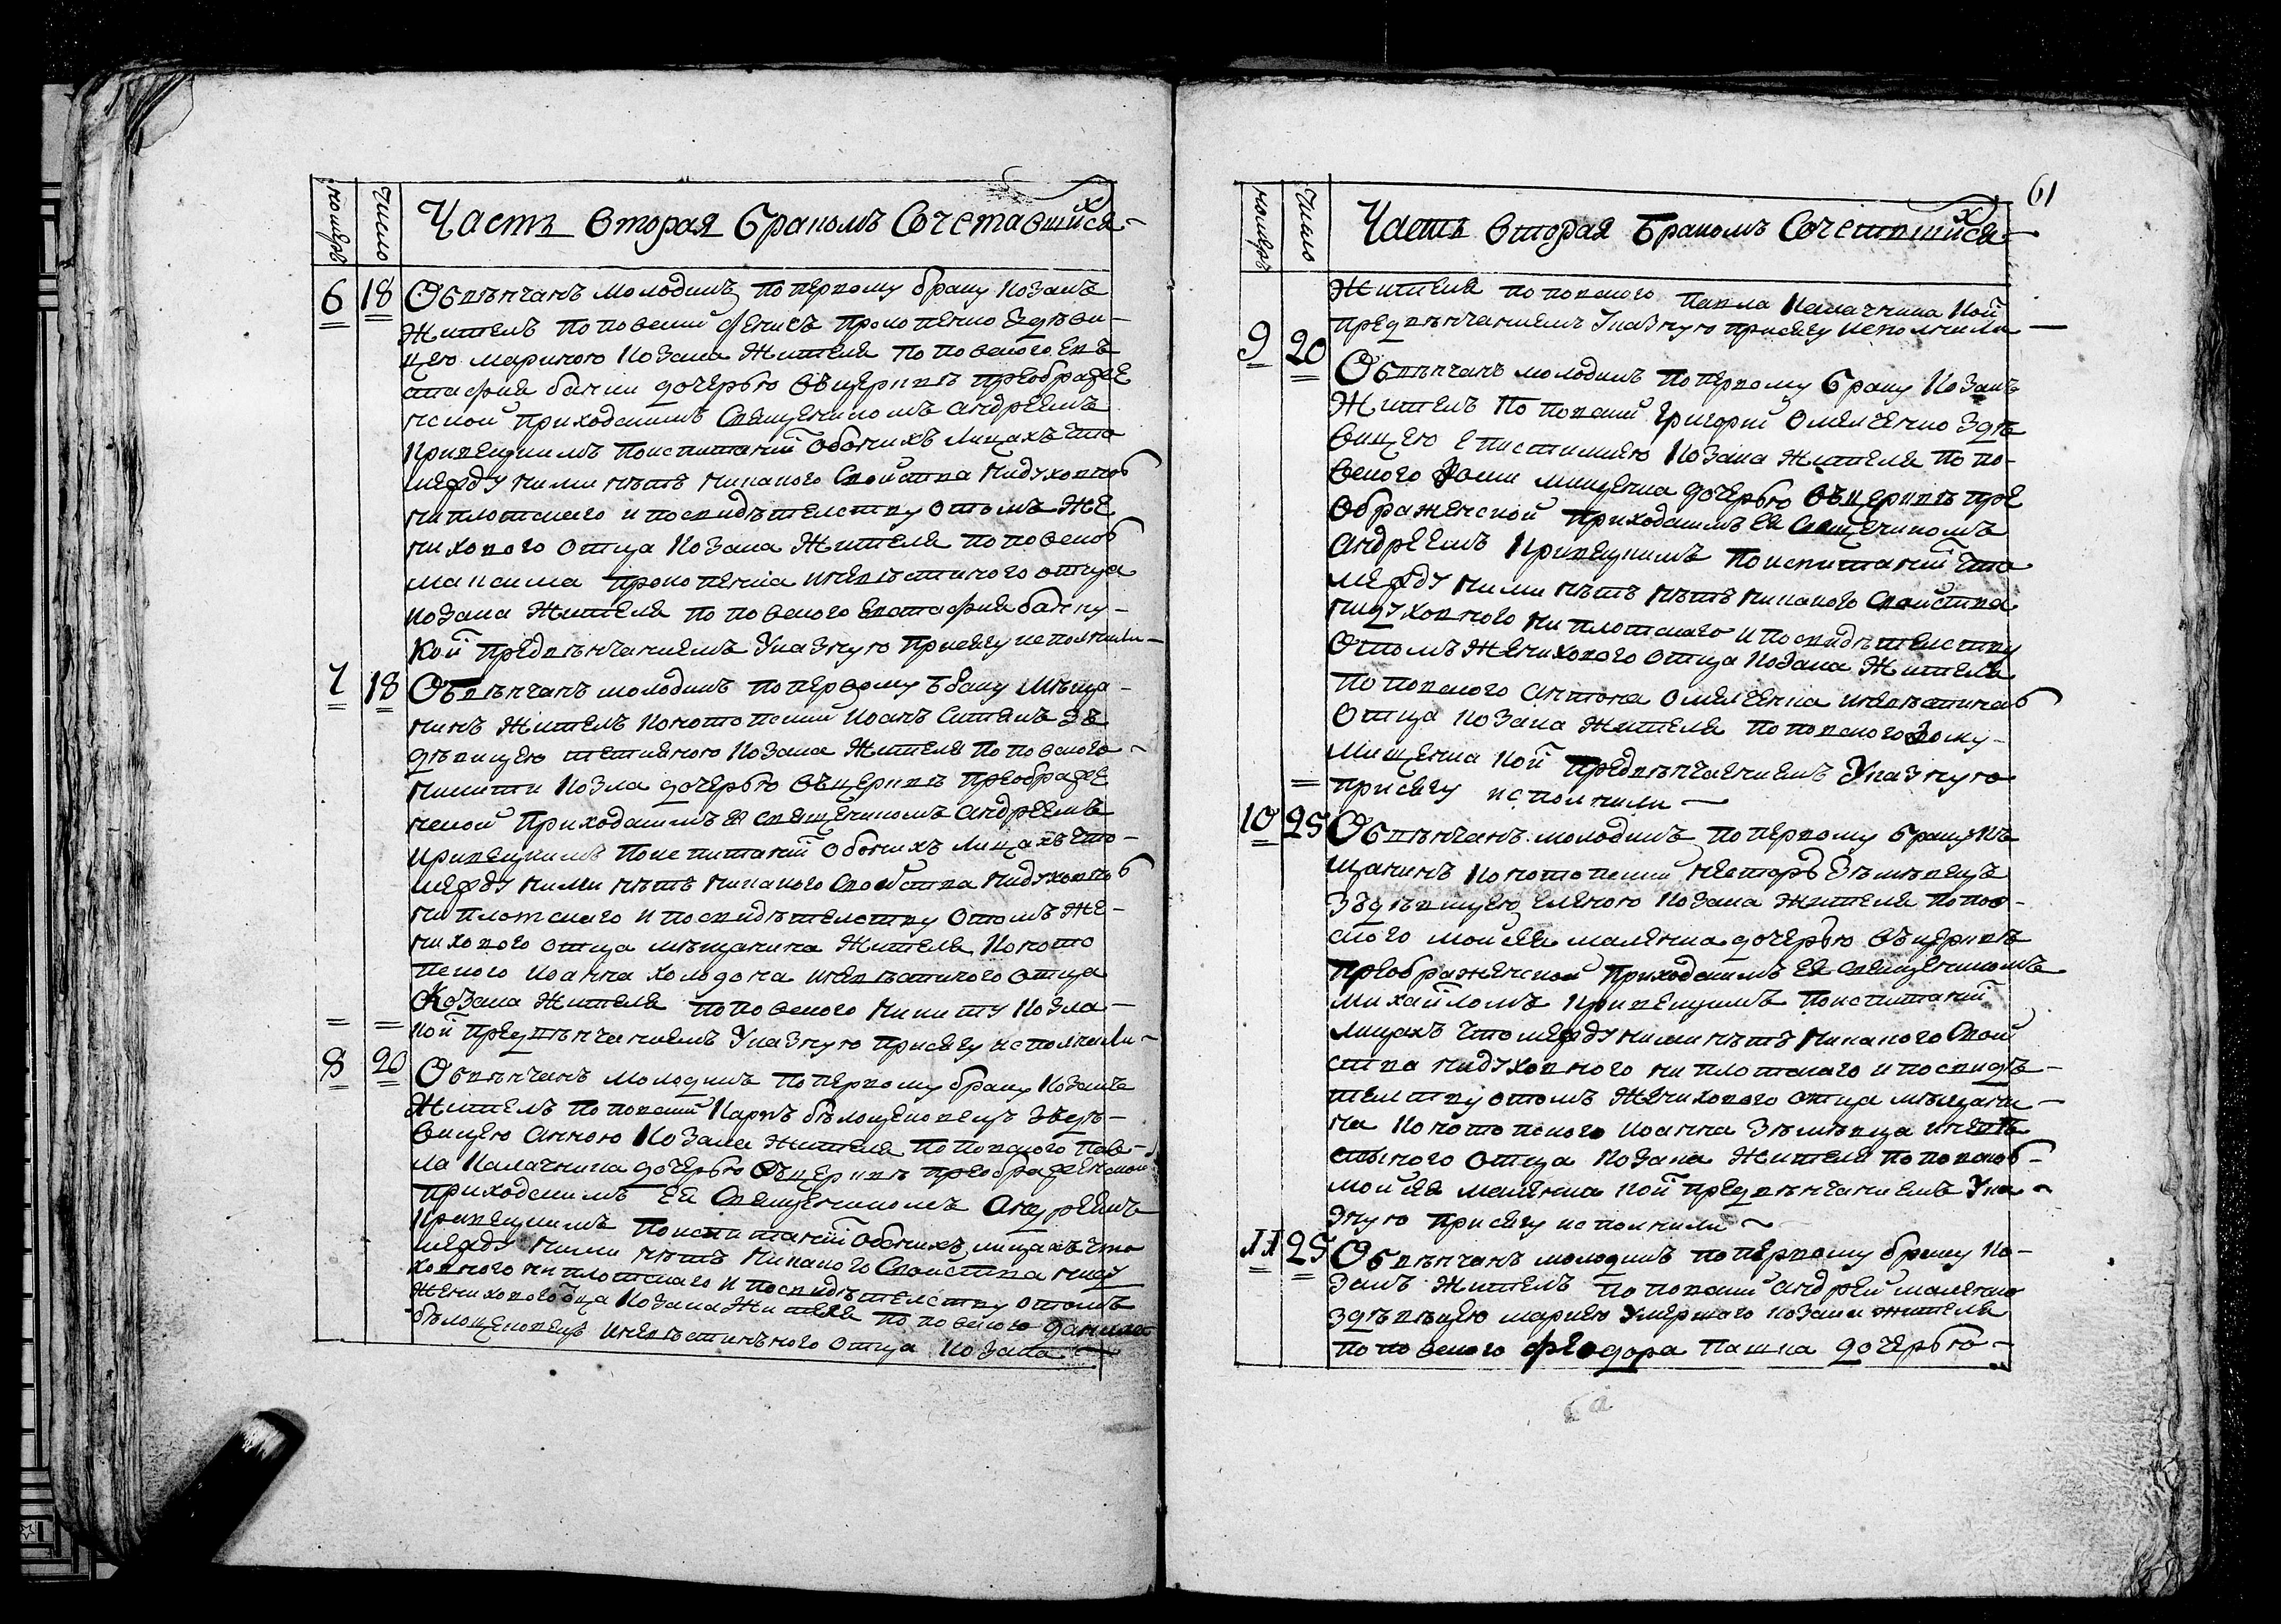 номеръ
Число
Часть вторая бракомъ Сочетавшихся
6 18 Обвѣнчанъ молодикъ поперъвому браку козакъ
житель поповский Денисъ Прокопенко здѣви-
цею Мариною козака жителя поповского Евъ
стафия бачки дочерью въцерквѣ преображе
нской приходскимъ Священикомъ андреемъ
Кривецкимъ поиспитании обоихъ лицахъ что
между ними нѣтъ никакого Свойства нидуховного
ниплотскаго и посвидѣтелству отомъ же
нихового отца козака жителя поповского
максима прокопенка иневѣстиного отца
козака жителя поповского Евстафия бачку-
кой предвѣнчаниемъ Указную присягу исполнили
7 18 Обвѣнчанъ молодикъ поперъвому браку мѣща-
нинъ житель конотопский Иоанъ зъ
дѣвицею козака жителя поповского
никити козла дочерью въцерквѣ преображе
нской приходскимъ ея священикомъ андреемъ
кривецкимъ поиспитании обоихъ лицахъ что-
между ними нѣтъ никакого свойства нидуховного
ниплотскаго и посвидѣтелству отомъ же-
нихового отца мѣщанина жителя Коното
пского Иоанна холодона иневѣстиного отца
козака жителя поповского никиту козла
кой предвѣнчаниемъ Указную присягу исполнили
8 20 Обвѣнчанъ молодикъ поперъвому браку козакъ
житель поповский Карпъ бѣлоцерковецъ здѣ-
вицею Анною козака жителя поповского пав-
ла калачника дочерью въцерквѣ преображенской
приходскимъ ея Священикомъ Андреемъ
кривецкимъ поиспитании обоихъ лицахъ что
между ними нѣтъ никакого Свойства ниду
ховного ниплотскаго и посвидѣтелству отомъ
женихового отца козака жителя поповского данила
бѣлоцерковца иневѣстинъного отца козака
61
номеръ
Число
Часть вторая Бракомъ Сочетшихся
жителя поповского павла Калачника кой
предвѣнчаниемъ Указную присягу исполнили
9 20 Обвѣнчанъ молодикъ поперъвому браку козакъ
житель поповский григорий омелченко здѣ
вицею епистимиею козака жителя попо-
вского Фоми мищенка дочерью въцерквѣ пре
ображенской приходскимъ ея Священикомъ
андреемъ Кривецкимъ поиспитании что
между ними нѣтъ нѣтъ никакого свойства
нидуховного ниплотскаго и посвидѣтелству
отомъ женихового отца козака жителя
поповского антона омелченка иневѣстиного
отца козака жителя поповского Фому-
мищенка кой предвѣнчаениемъ Указную
присягу исполнили
10 25 Обвѣнчанъ молодикъ поперъвому браку мѣ
щанинъ конотопский несторъ
зъдѣвицею еленою козака жителя попов-
ского мойсея маленка дочерью въцерквѣ
преображенской приходскимъ ея священикомъ
михайломъ кривецкимъ поиспитании
лицахъ что между ними нѣтъ никакого свой
ства нидуховного ниплотскаго и посвидѣ-
телству отомъ женихового отца мѣщани-
на конотопского Иоанна иневѣ
стьиного отца козака жителя поповского
мойсея маленка кой предвѣнчаниемъ Ука-
зную присягу исполнили
11 25 Обвѣнчанъ молодикъ поперъвому браку ко-
закъ житель поповский андрей маленко
здѣвѣцею мариею умершого козака жителя
поповского феодора пашка дочерью